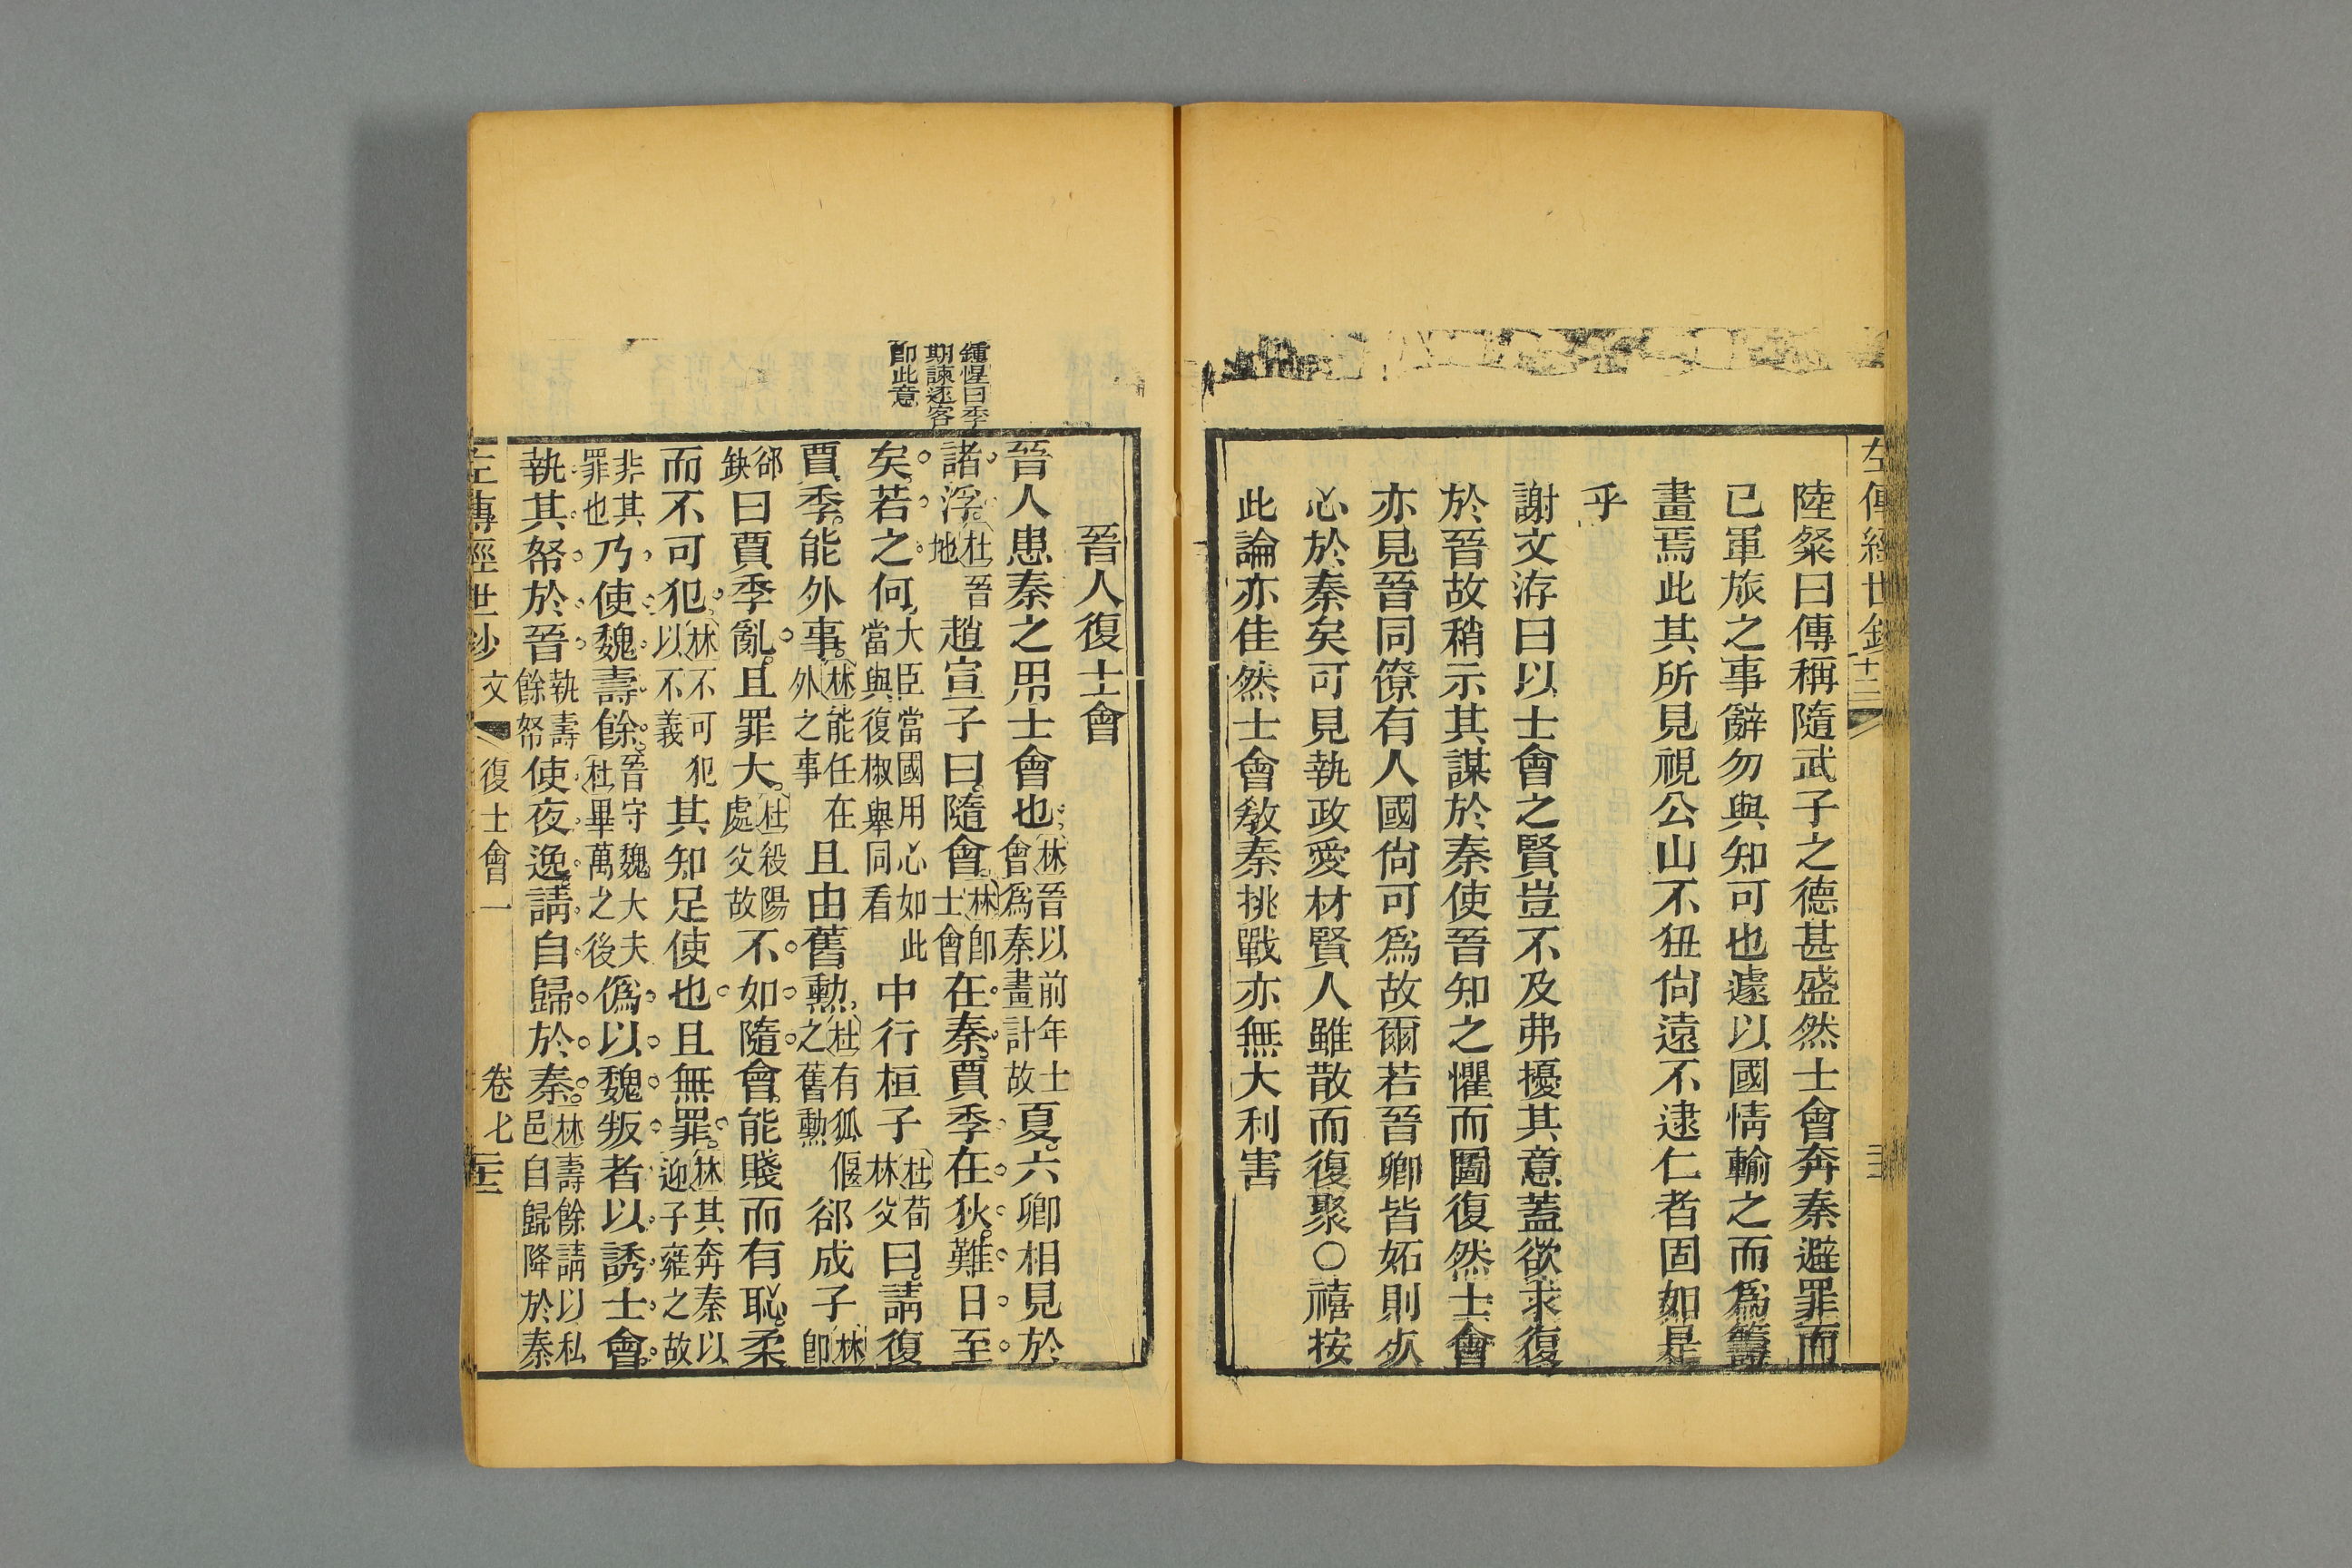 陸粲曰傳稱隨武子之德甚盛然士會奔秦避罪而
已軍旅之事辭勿與知可也遽以國情輸之而爲籌
畫焉此其所見視公山不狃尙遠不逮仁者固如是
乎
謝文洊曰以士會之賢豈不及弗擾其意蓋欲求復
於晉故稍示其謀於秦使晉知之懼而圖復然士會
亦見晉同僚有人國尙可爲故爾若晉卿皆妬則必
心於秦矣可見執政愛材賢人雖散而復聚○禧按
此論亦佳然士會敎秦挑戰亦無大利害
鍾惺曰季
期諫逐客
卽此意
晉人復士會
晉人患秦之用士會也林晉以前年士會爲秦畫計故夏六卿相見於
諸浮杜晉地趙宣子曰隨會林卽士會在秦賈季在狄難日至
矣若之何大臣當國用心如此當與復椒舉同看中行桓子杜荀林父曰請復
賈季能外事林能任在外之事且由舊勲杜有狐偃之舊勲郤成子林卽
郤缺曰賈季亂且罪大杜殺陽處父故不如隨會能賤而有恥柔
而不可犯林不可犯以不義其知足使也且無罪林其奔秦以迎子雍之故
非其罪也乃使魏壽餘晉守魏大夫杜畢萬之後僞以魏叛者以誘士會
執其帑於晉執壽餘帑使夜逸請自歸於秦林壽餘請以私邑自歸降於秦
左傳經世鈔 文 復士會一 卷七